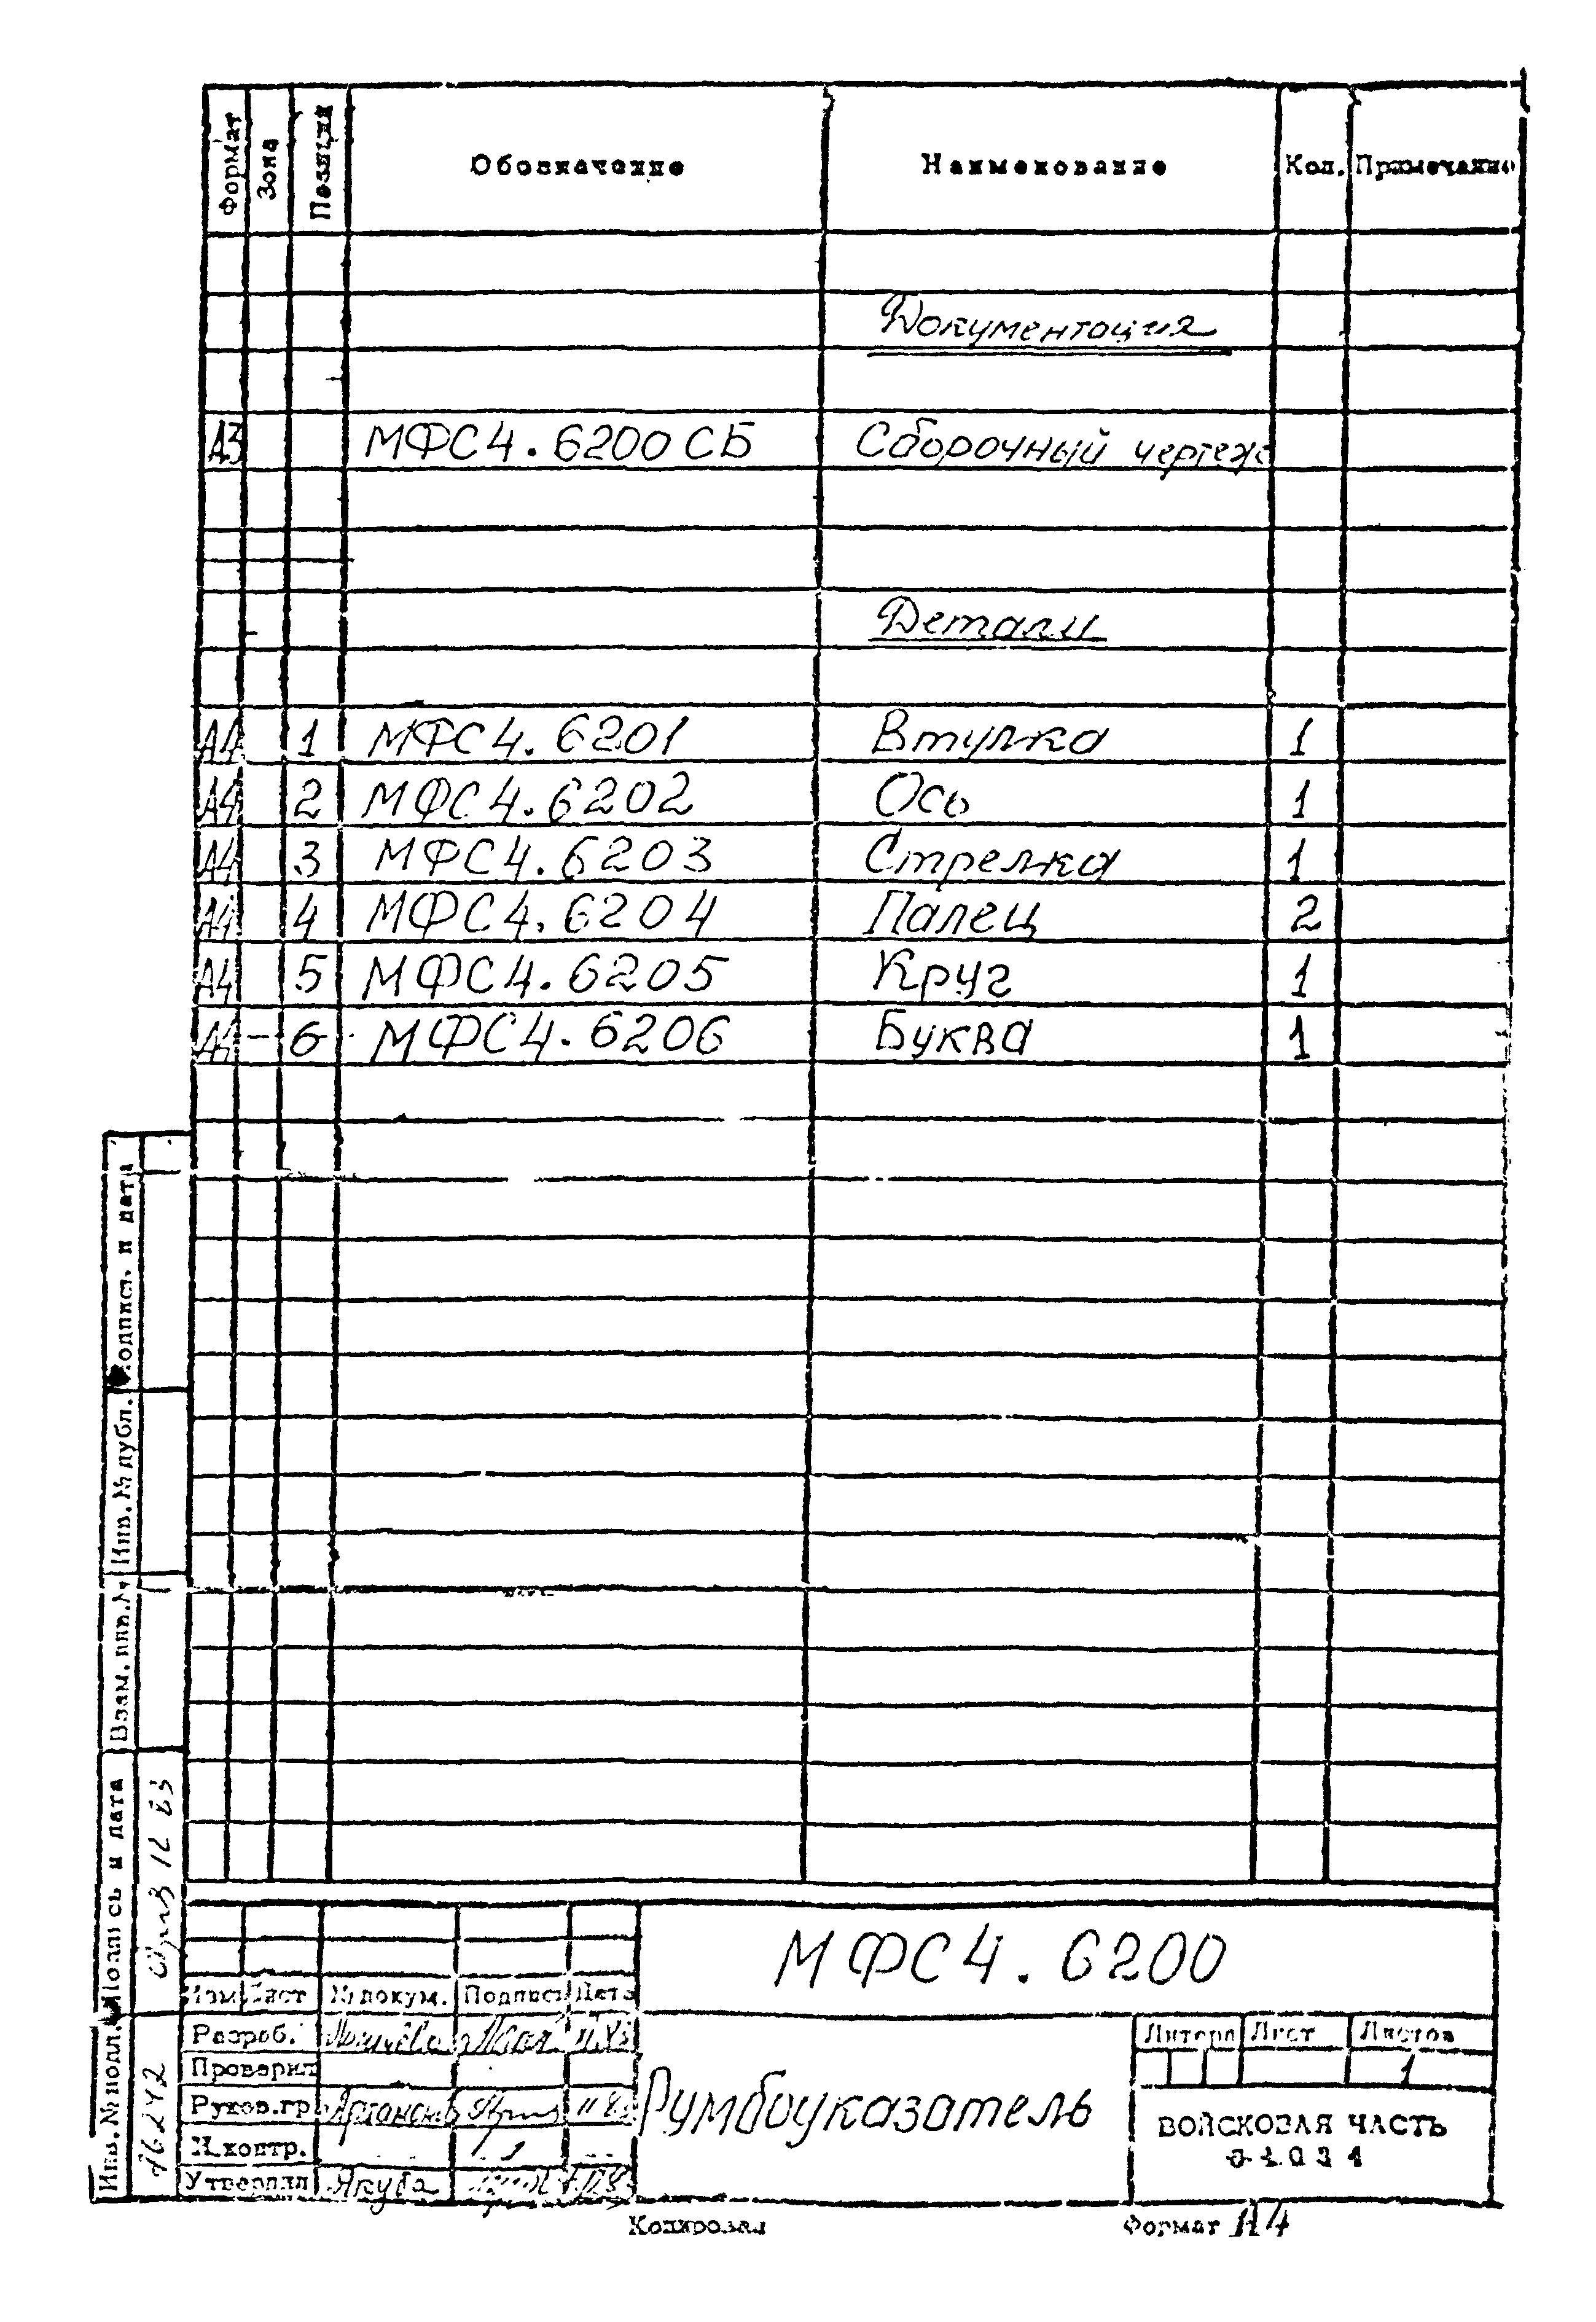 Формат Зона Позиция Обозначение Наименование Кол. Примечание
Документация
А3 МФС4.6200 СБ Сборочный чертеж
Детали
А4 1 МФС4.6201 Втулка 1
А4 2 МФС4.6202 Ось 1
А4 3 МФС4.6203 Стрелка 1
А4 4 МФС4.6204 Палец 2
А4 5 МФС4.6205 Круг 1
А4 6 МФС4.6206 Буква 1
Подпись и дата
Инв. № дубл.
Взам. инв. №
Подпись и дата
Инв. № подл.
МФС4.6200
Изм Лист № докум. Подпись Дата
Разраб.
Проверил
Руков.гр.
Н.контр.
Утвердил Якуба
Румбоуказатель
Литера Лист Листов
1
ВОЙСКОВАЯ ЧАСТЬ
Копировал Формат А4